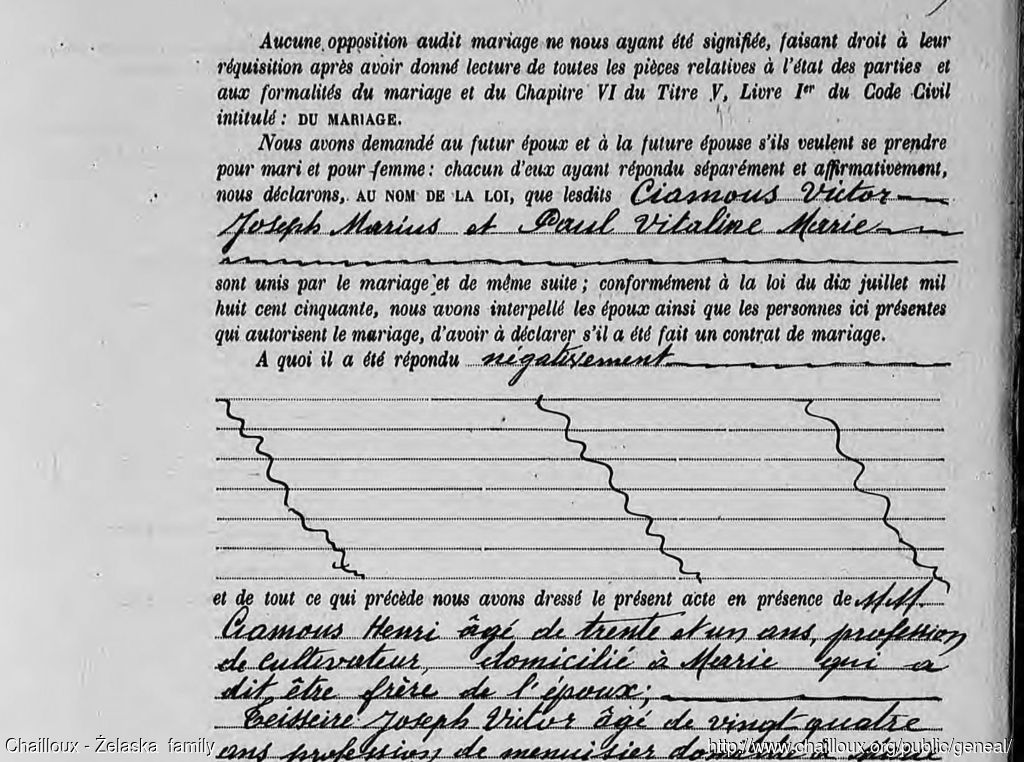 Aucune opposition audit mariage ne nous ayant été signifiée, faisant droit à leur
réquisition après avoir donné lecture de toutes les pièces relatives à l'état des parties et
aux formalités du mariage et du Chapitre VI du Titre V, Livre Ier du Code Civil
intitulé : DU MARIAGE.
Nous avons demandé au futur époux et à la future épouse s'ils veulent se prendre
pour mari et pour femme : chacun d'eux ayant répondu séparément et affirmativement,
nous déclarons, AU NOM DE LA LOI, que lesdits Ciamous Victor
Joseph Marius et Paul Vitaline Marie
sont unis par le mariage et de même suite ; conformément à la loi du dix juillet mil
huit cent cinquante, nous avons interpellé les époux ainsi que les personnes ici présentes
qui autorisent le mariage, d'avoir à déclarer s'il a été fait un contrat de mariage.
A quoi il a été répondu négativement
et de tout ce qui précède nous avons dressé le présent acte en présence de MM.
Ciamous Henri âgé de trente et un ans, profession
de cultivateur, domicilié à Mearie qui a
dit être frère de l'époux ;
Teisseire Joseph Victor âgé de vingt quatre
ans profession de menuisier à
Chailloux - Żelaska family
http://www.chailloux.org/public/geneal/